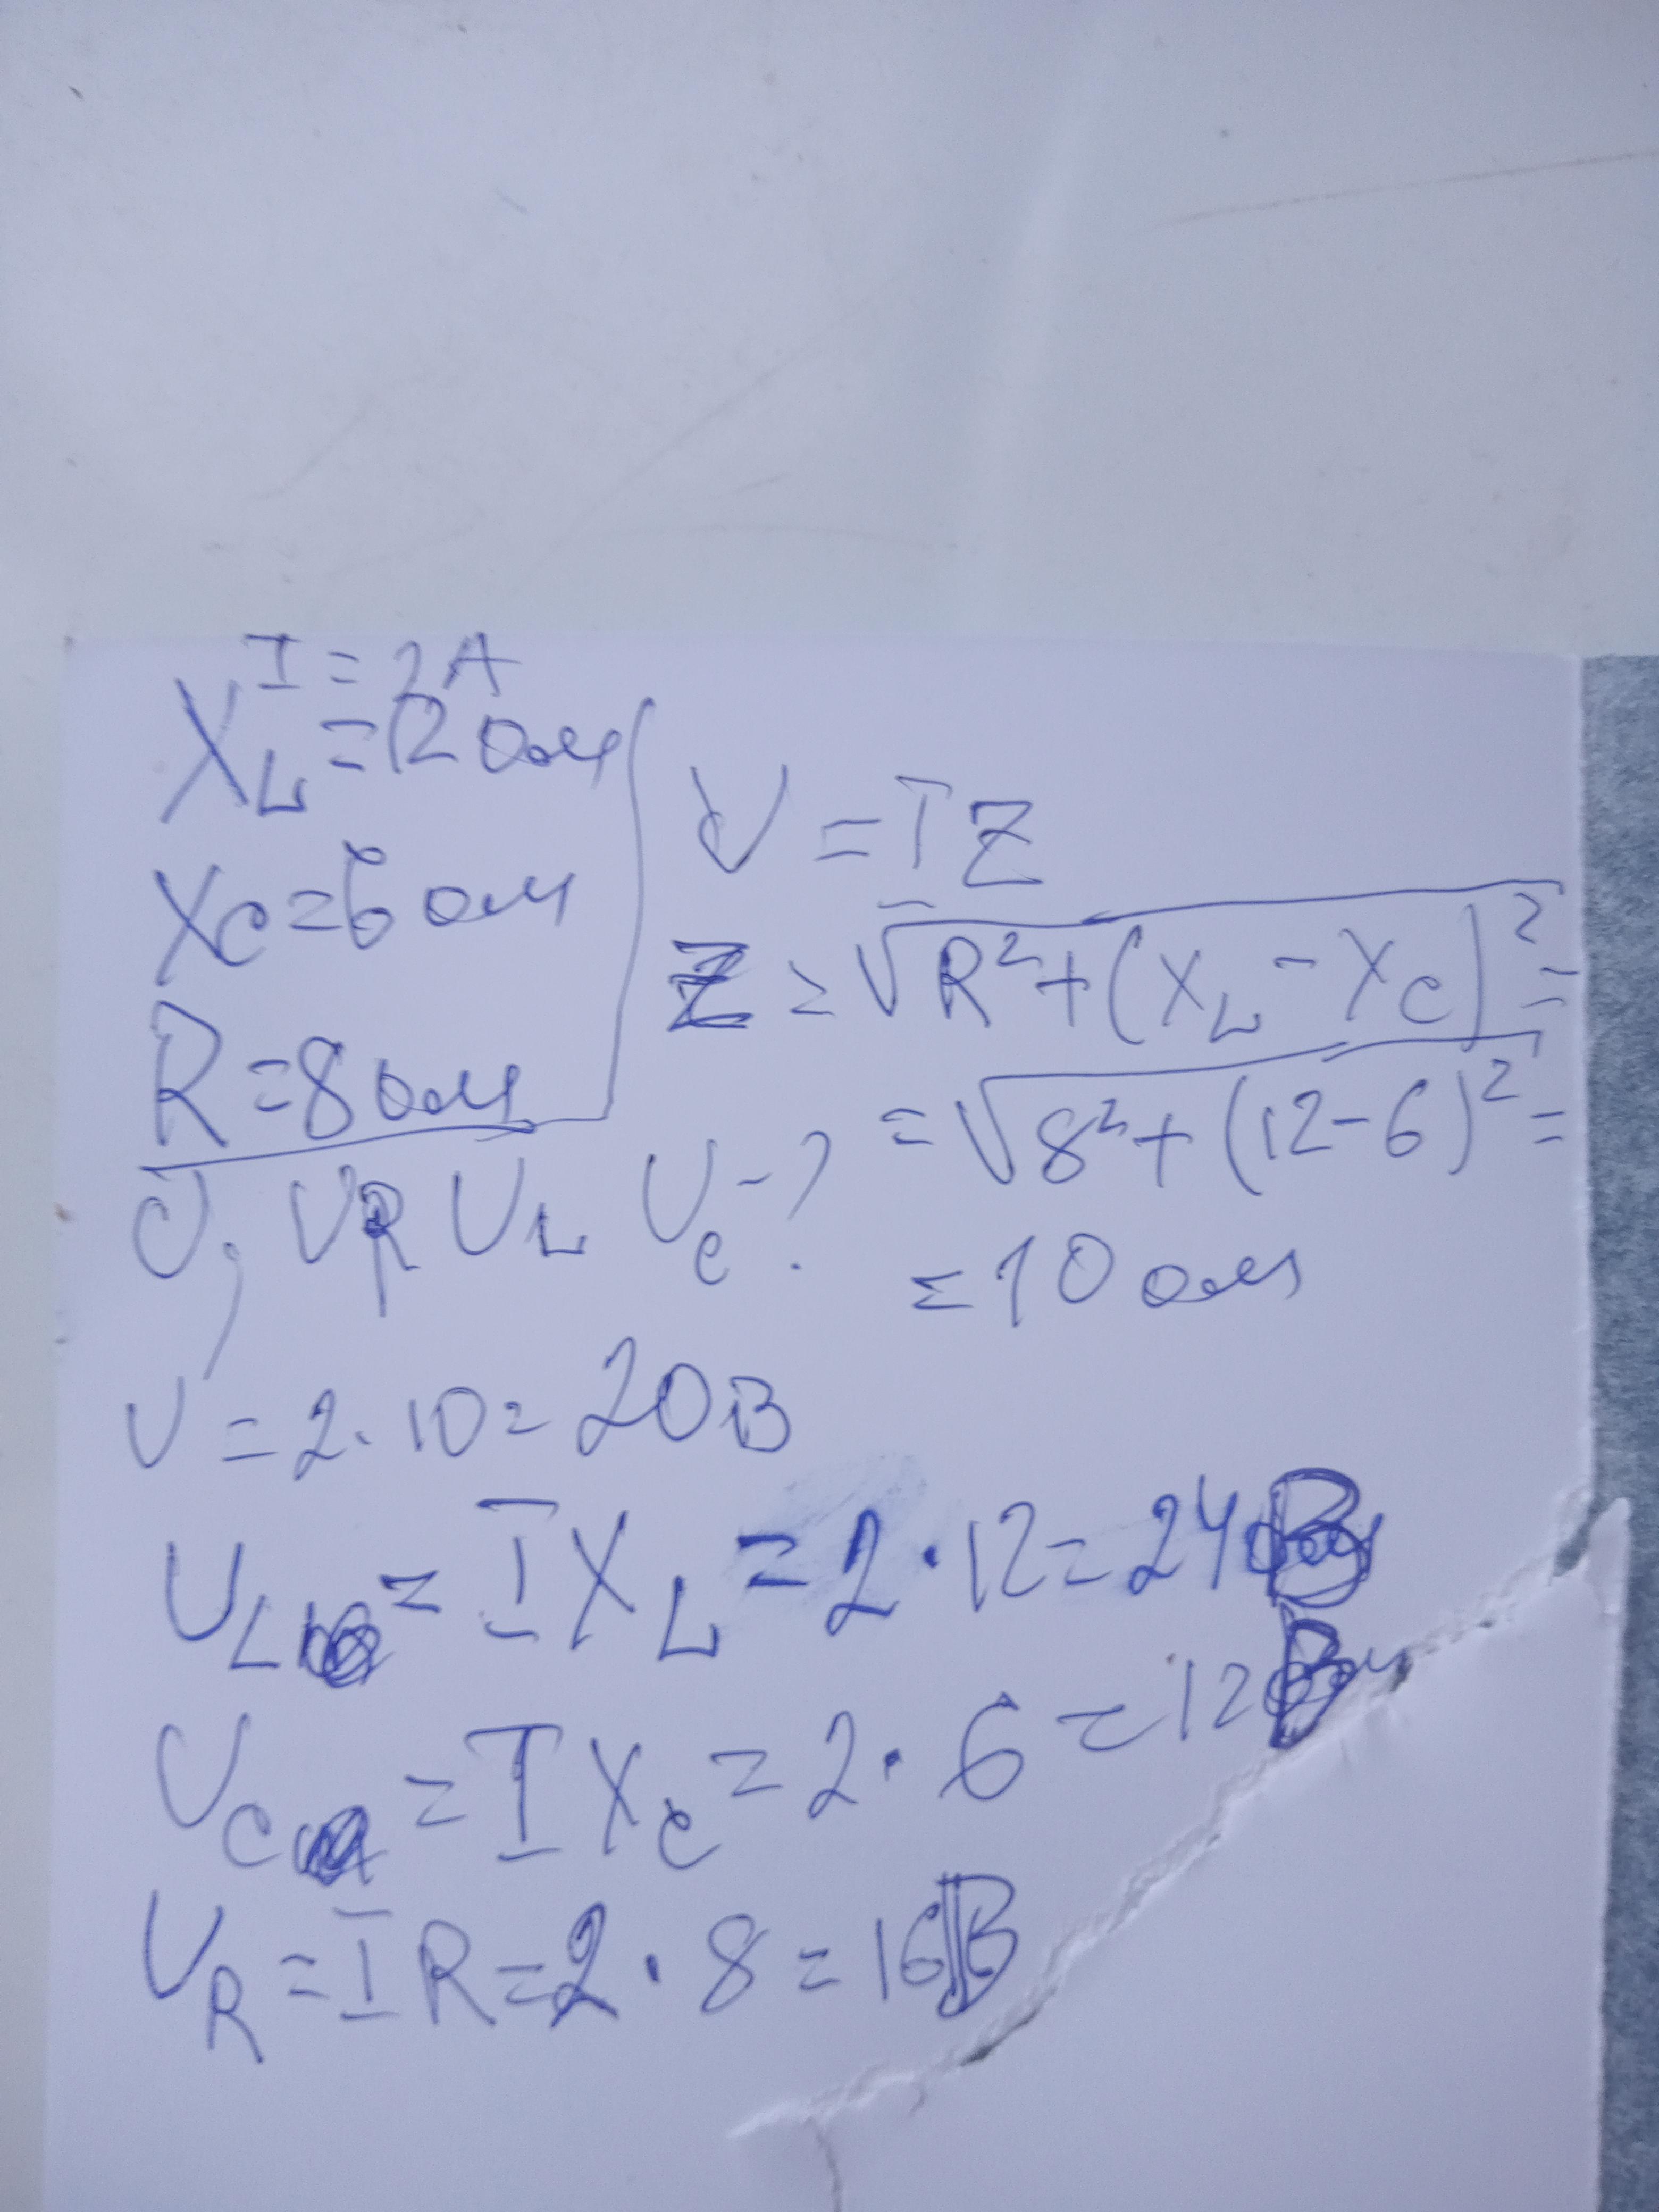 I = 2A
X_L = 12 Ом
Xc = 6 ом
R = 8 ом
U, U_R U_L U_c - ?
U = I Z
Z = √R² + (X_L - X_C)² =
= √8² + (12 - 6)² =
= 10 ом
U = 2 · 10 = 20В
U_L = I X_L = 2 · 12 = 24 В
U_C = I X_c = 2 · 6 = 12 В
U_R = I R = 2 · 8 = 16 В